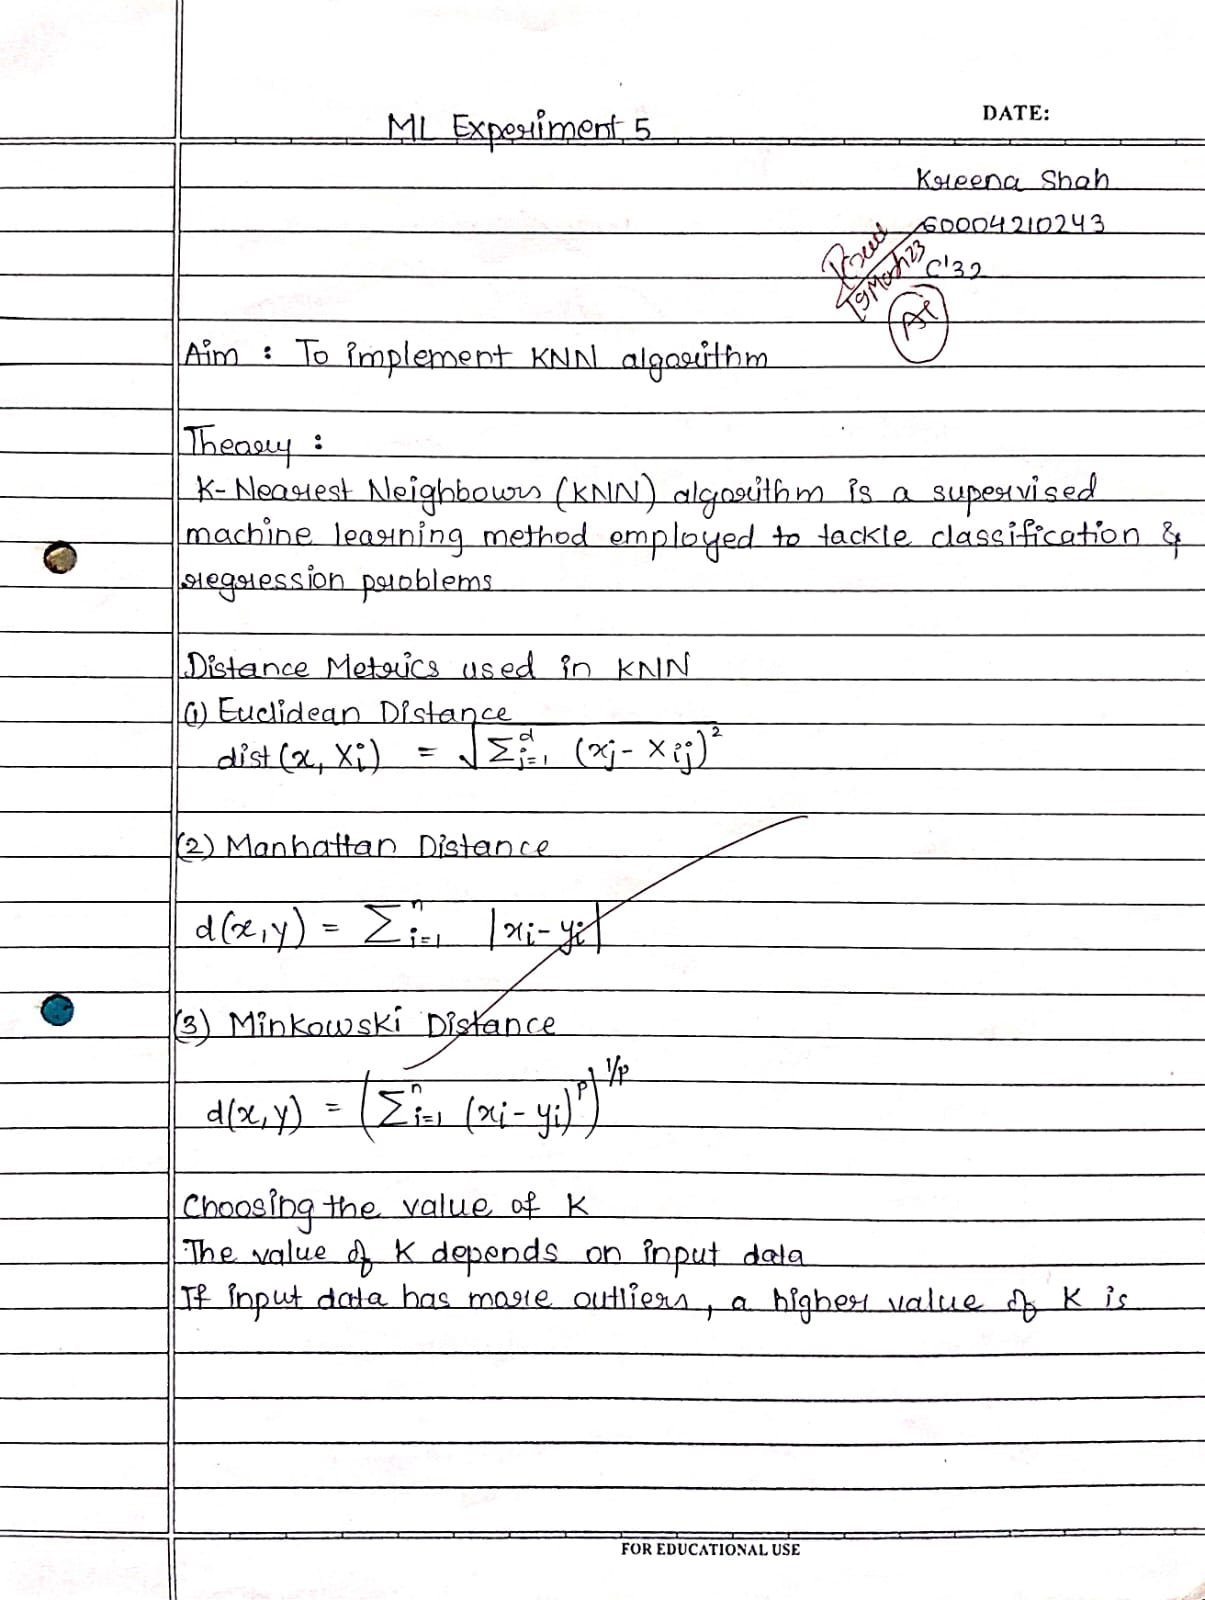 DATE:
ML Experiment 5
Kreena Shah
60004210243
C'32
Aim : To implement KNN algorithm
Theory :
K-Nearest Neighbours (KNN) algorithm is a supervised
machine learning method employed to tackle classification &
regression problems
Distance Metrics used in KNN
(1) Euclidean Distance
dist(x, Xi) = √Σᵈⱼ₌₁ (xj - Xij)²
(2) Manhattan Distance
d(x,y) = Σⁿᵢ₌₁ |xi - yi|
(3) Minkowski Distance
d(x,y) = (Σⁿᵢ₌₁ (xi - yi)ᵖ)^1/p
Choosing the value of K
The value of K depends on input data
If input data has more outliers, a higher value of K is
FOR EDUCATIONAL USE